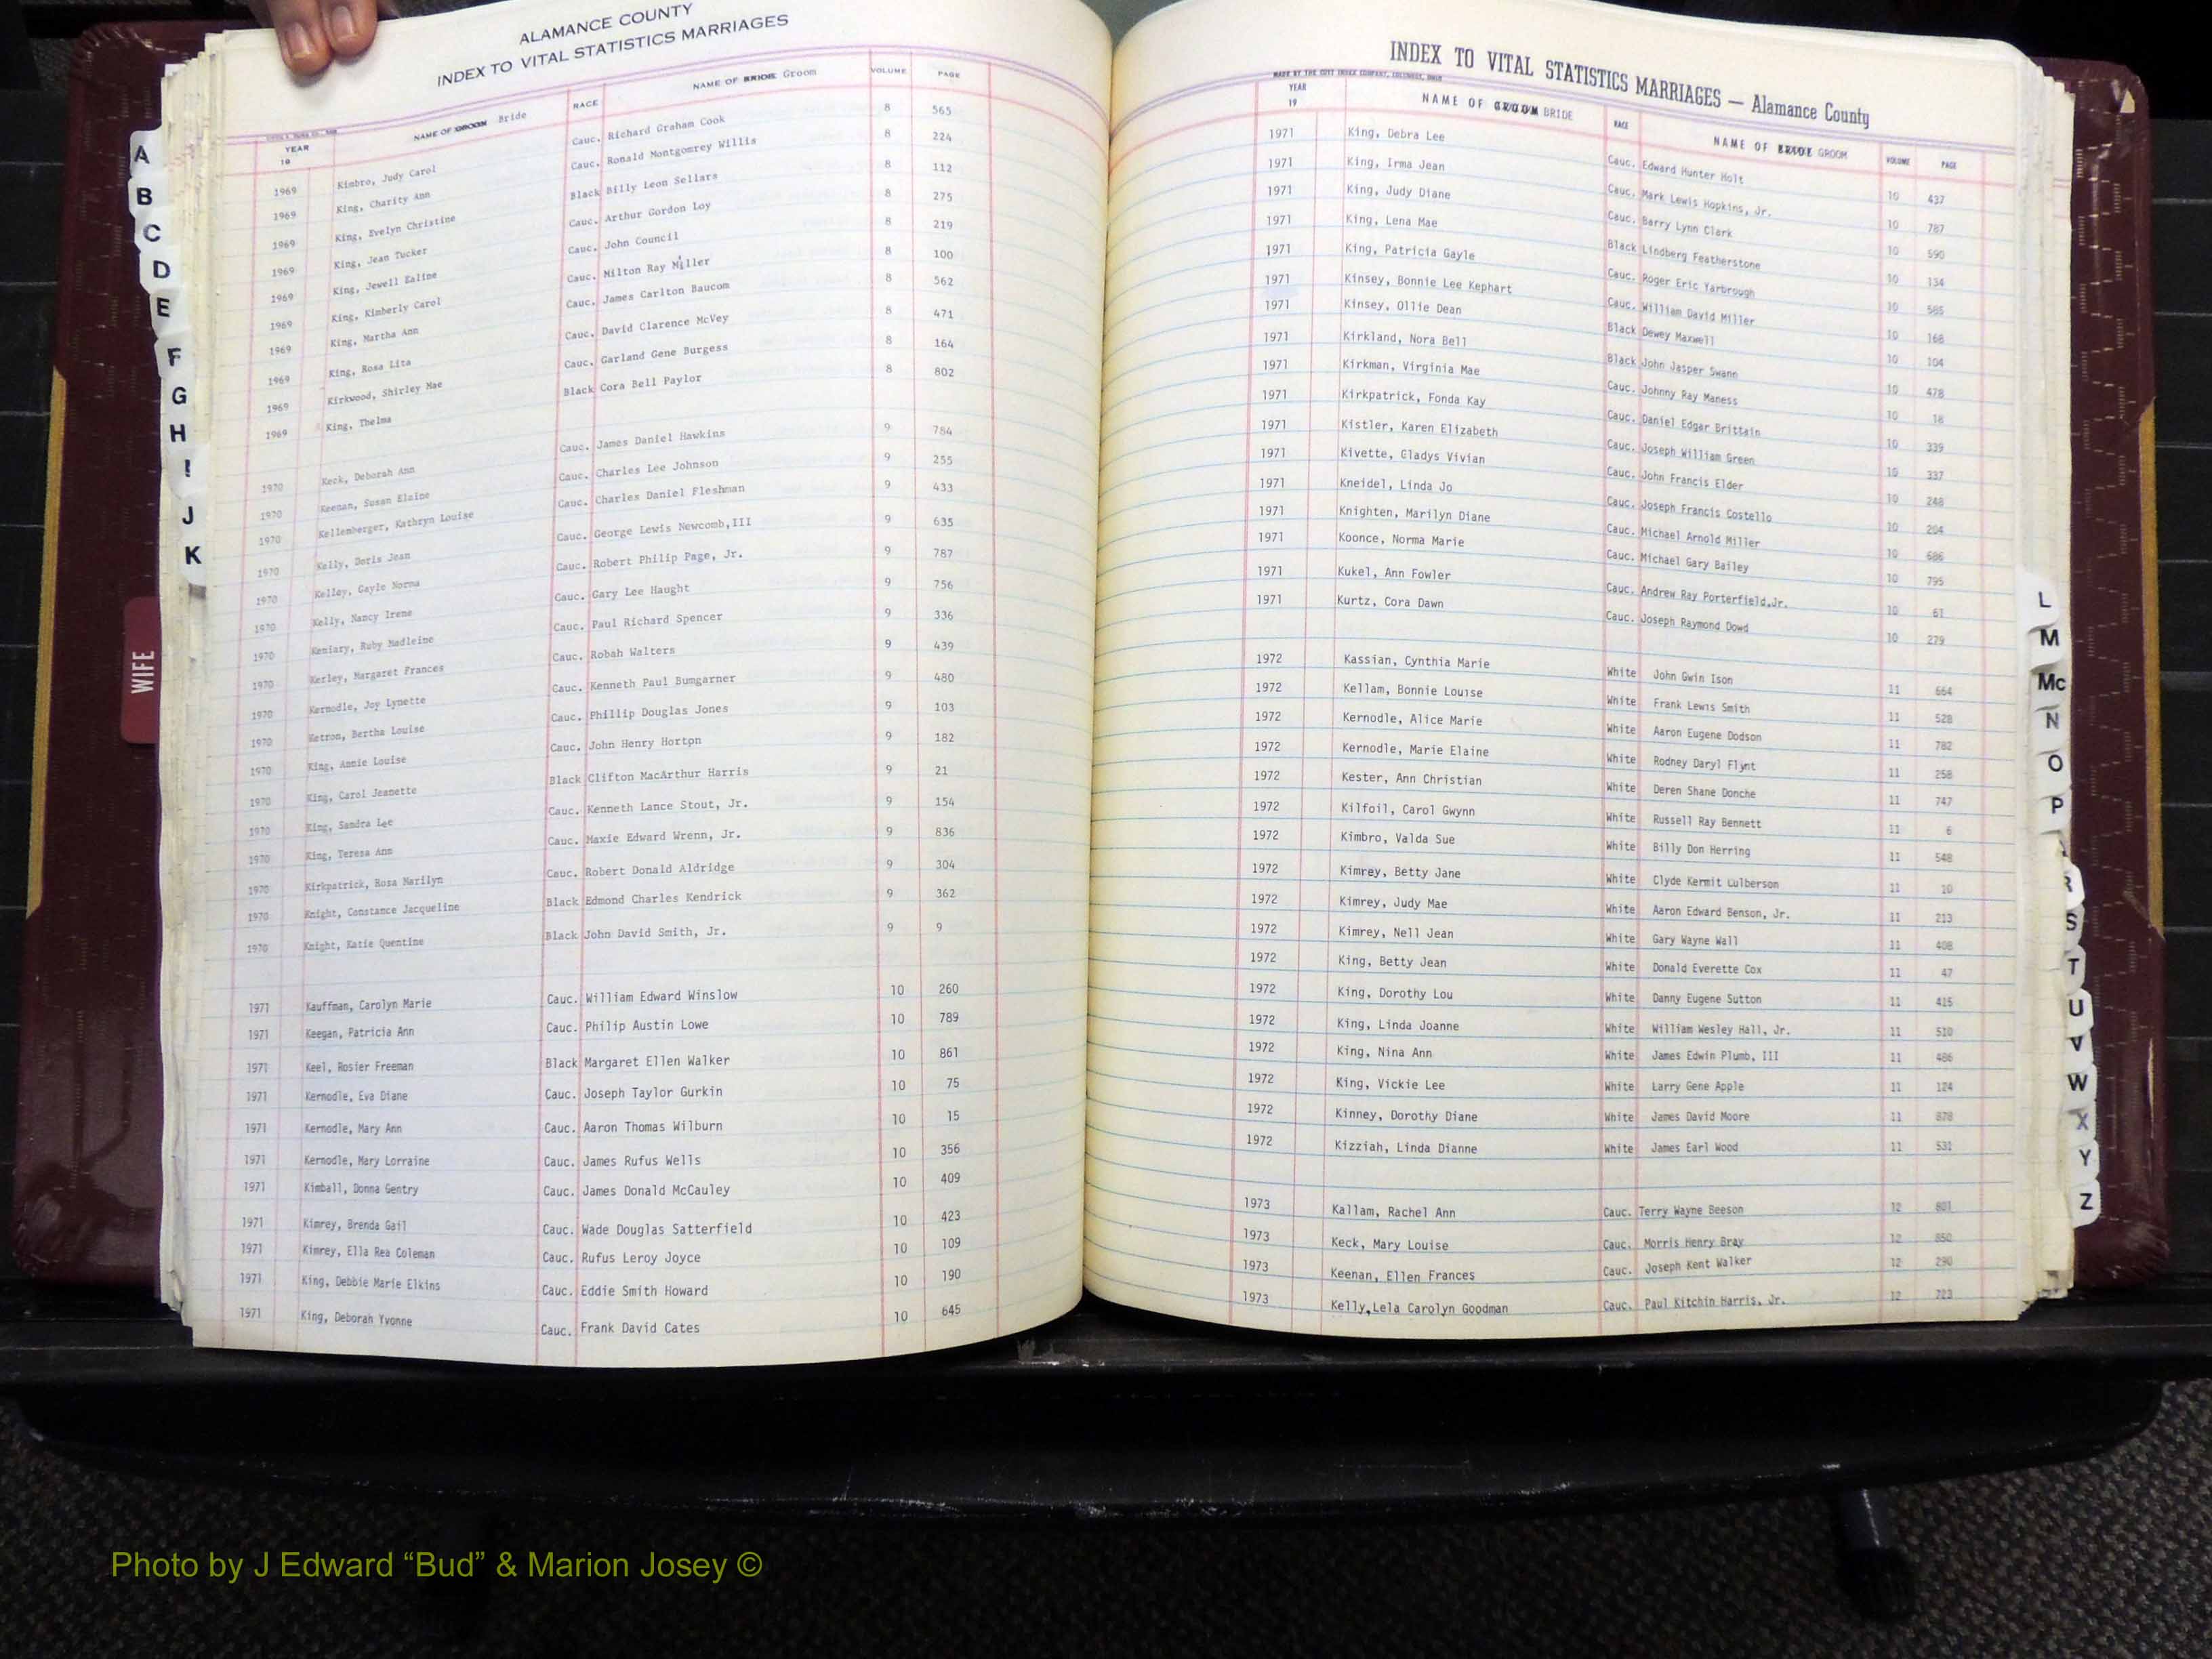 ALAMANCE COUNTY
INDEX TO VITAL STATISTICS MARRIAGES
YEAR 19 NAME OF GROOM Bride RACE NAME OF BRIDE Groom VOLUME PAGE
1969 Kimbro, Judy Carol Cauc. Richard Graham Cook 8 565
1969 King, Charity Ann Cauc. Ronald Montgomrey Willis 8 224
1969 King, Evelyn Christine Black Billy Leon Sellars 8 112
1969 King, Jean Tucker Cauc. Arthur Gordon Loy 8 275
1969 King, Jewell Ealine Cauc. John Council 8 219
1969 King, Kimberly Carol Cauc. Milton Ray Miller 8 100
1969 King, Martha Ann Cauc. James Carlton Baucom 8 562
1969 King, Rosa Lita Cauc. David Clarence McVey 8 471
1969 Kirkwood, Shirley Mae Cauc. Garland Gene Burgess 8 164
1969 King, Thelma Black Cora Bell Paylor 8 802
1970 Keck, Deborah Ann Cauc. James Daniel Hawkins 9 784
1970 Keenan, Susan Elaine Cauc. Charles Lee Johnson 9 255
1970 Kellenberger, Kathryn Louise Cauc. Charles Daniel Fleshman 9 433
1970 Kelly, Doris Jean Cauc. George Lewis Newcomb,III 9 635
1970 Kelley, Gayle Norma Cauc. Robert Philip Page, Jr. 9 787
1970 Kelly, Nancy Irene Cauc. Gary Lee Haught 9 756
1970 Keniary, Ruby Madleine Cauc. Paul Richard Spencer 9 336
1970 Kerley, Margaret Frances Cauc. Robah Walters 9 439
1970 Kernodle, Joy Lynette Cauc. Kenneth Paul Bumgarner 9 480
1970 Ketron, Bertha Louise Cauc. Phillip Douglas Jones 9 103
1970 King, Annie Louise Cauc. John Henry Horton 9 182
1970 King, Carol Jeanette Black Clifton MacArthur Harris 9 21
1970 King, Sandra Lee Cauc. Kenneth Lance Stout, Jr. 9 154
1970 King, Teresa Ann Cauc. Maxie Edward Wrenn, Jr. 9 836
1970 Kirkpatrick, Roza Marilyn Cauc. Robert Donald Aldridge 9 304
1970 Knight, Constance Jacqueline Black Edmond Charles Kendrick 9 362
1970 Knight, Katie Quentine Black John David Smith, Jr. 9 9
1971 Kauffman, Carolyn Marie Cauc. William Edward Winslow 10 260
1971 Keegan, Patricia Ann Cauc. Philip Austin Lowe 10 789
1971 Keel, Rosier Freeman Black Margaret Ellen Walker 10 861
1971 Kernodle, Eva Diane Cauc. Joseph Taylor Gurkin 10 75
1971 Kernodle, Mary Ann Cauc. Aaron Thomas Wilburn 10 15
1971 Kernodle, Mary Lorraine Cauc. James Rufus Wells 10 356
1971 Kimball, Donna Gentry Cauc. James Donald McCauley 10 409
1971 Kimrey, Brenda Gail Cauc. Wade Douglas Satterfield 10 423
1971 Kimrey, Ella Rea Coleman Cauc. Rufus Leroy Joyce 10 109
1971 King, Debbie Marie Elkins Cauc. Eddie Smith Howard 10 190
1971 King, Deborah Yvonne Cauc. Frank David Cates 10 645
A
B
C
D
E
F
G
H
I
J
K
WIFE
INDEX TO VITAL STATISTICS MARRIAGES — Alamance County
MADE BY THE COTT INDEX COMPANY, COLUMBUS, OHIO
YEAR 19 NAME OF GROOM BRIDE RACE NAME OF BRIDE GROOM VOLUME PAGE
1971 King, Debra Lee Cauc. Edward Hunter Holt 10 437
1971 King, Irma Jean Cauc. Mark Lewis Hopkins, Jr. 10 787
1971 King, Judy Diane Cauc. Barry Lynn Clark 10 590
1971 King, Lena Mae Black Lindberg Featherstone 10 134
1971 King, Patricia Gayle Cauc. Roger Eric Yarbrough 10 585
1971 Kinsey, Bonnie Lee Kephart Cauc. William David Miller 10 168
1971 Kinsey, Ollie Dean Black Dewey Maxwell 10 104
1971 Kirkland, Nora Bell Black John Jasper Swann 10 478
1971 Kirkman, Virginia Mae Cauc. Johnny Ray Maness 10 18
1971 Kirkpatrick, Fonda Kay Cauc. Daniel Edgar Brittain 10 339
1971 Kistler, Karen Elizabeth Cauc. Joseph William Green 10 337
1971 Kivette, Gladys Vivian Cauc. John Francis Elder 10 248
1971 Kneidel, Linda Jo Cauc. Joseph Francis Costello 10 204
1971 Knighten, Marilyn Diane Cauc. Michael Arnold Miller 10 686
1971 Koonce, Norma Marie Cauc. Michael Gary Bailey 10 795
1971 Kukel, Ann Fowler Cauc. Andrew Ray Porterfield,Jr. 10 61
1971 Kurtz, Cora Dawn Cauc. Joseph Raymond Dowd 10 279
1972 Kassian, Cynthia Marie White John Gwin Ison 11 664
1972 Kellam, Bonnie Louise White Frank Lewis Smith 11 528
1972 Kernodle, Alice Marie White Aaron Eugene Dodson 11 782
1972 Kernodle, Marie Elaine White Rodney Daryl Flynt 11 258
1972 Kester, Ann Christian White Deren Shane Donche 11 747
1972 Kilfoil, Carol Gwynn White Russell Ray Bennett 11 6
1972 Kimbro, Valda Sue White Billy Don Herring 11 548
1972 Kimrey, Betty Jane White Clyde Kermit Culberson 11 10
1972 Kimrey, Judy Mae White Aaron Edward Benson, Jr. 11 213
1972 Kimrey, Nell Jean White Gary Wayne Wall 11 408
1972 King, Betty Jean White Donald Everette Cox 11 47
1972 King, Dorothy Lou White Danny Eugene Sutton 11 415
1972 King, Linda Joanne White William Wesley Hall, Jr. 11 510
1972 King, Nina Ann White James Edwin Plumb, III 11 486
1972 King, Vickie Lee White Larry Gene Apple 11 124
1972 Kinney, Dorothy Diane White James David Moore 11 878
1972 Kizziah, Linda Dianne White James Earl Wood 11 531
1973 Kallam, Rachel Ann Cauc. Terry Wayne Beeson 12 801
1973 Keck, Mary Louise Cauc. Morris Henry Bray 12 850
1973 Keenan, Ellen Frances Cauc. Joseph Kent Walker 12 290
1973 Kelly,Lela Carolyn Goodman Cauc. Paul Kitchin Harris, Jr. 12 723
L
M
Mc
N
O
P
R
S
T
U
V
W
X
Y
Z
Photo by J Edward “Bud” & Marion Josey ©